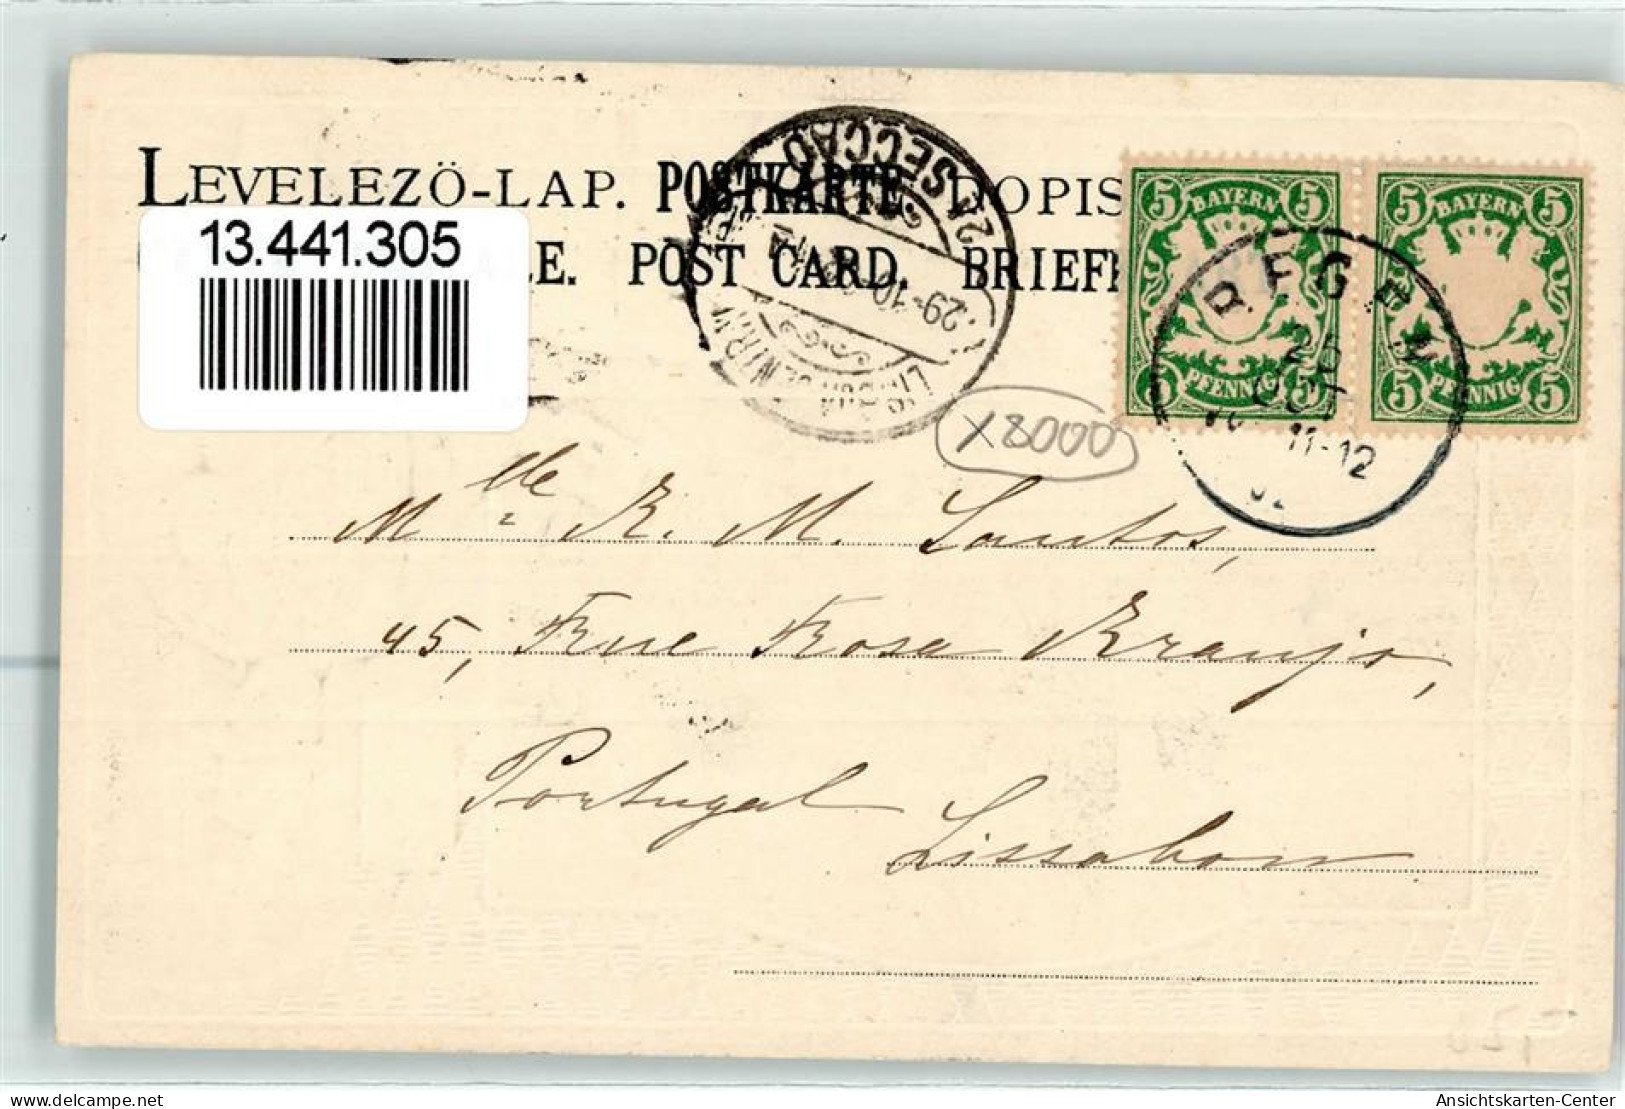 LEVELEZÖ-LAP. POSTKARTE DOPIS
13.441.305
POST CARD. BRIEFK
5 BAYERN 5
5 PFENNIG 5
5 BAYERN 5
5 PFENNIG 5
2ª SECCAO
29-10
LISBOA CENTRAL
REGEN
OCT
11-12
X8000
Mlle R. M. Santos,
45, Rue Rosa Araujo,
Portugal
Lissabon
www.delcampe.net
Ansichtskarten-Center